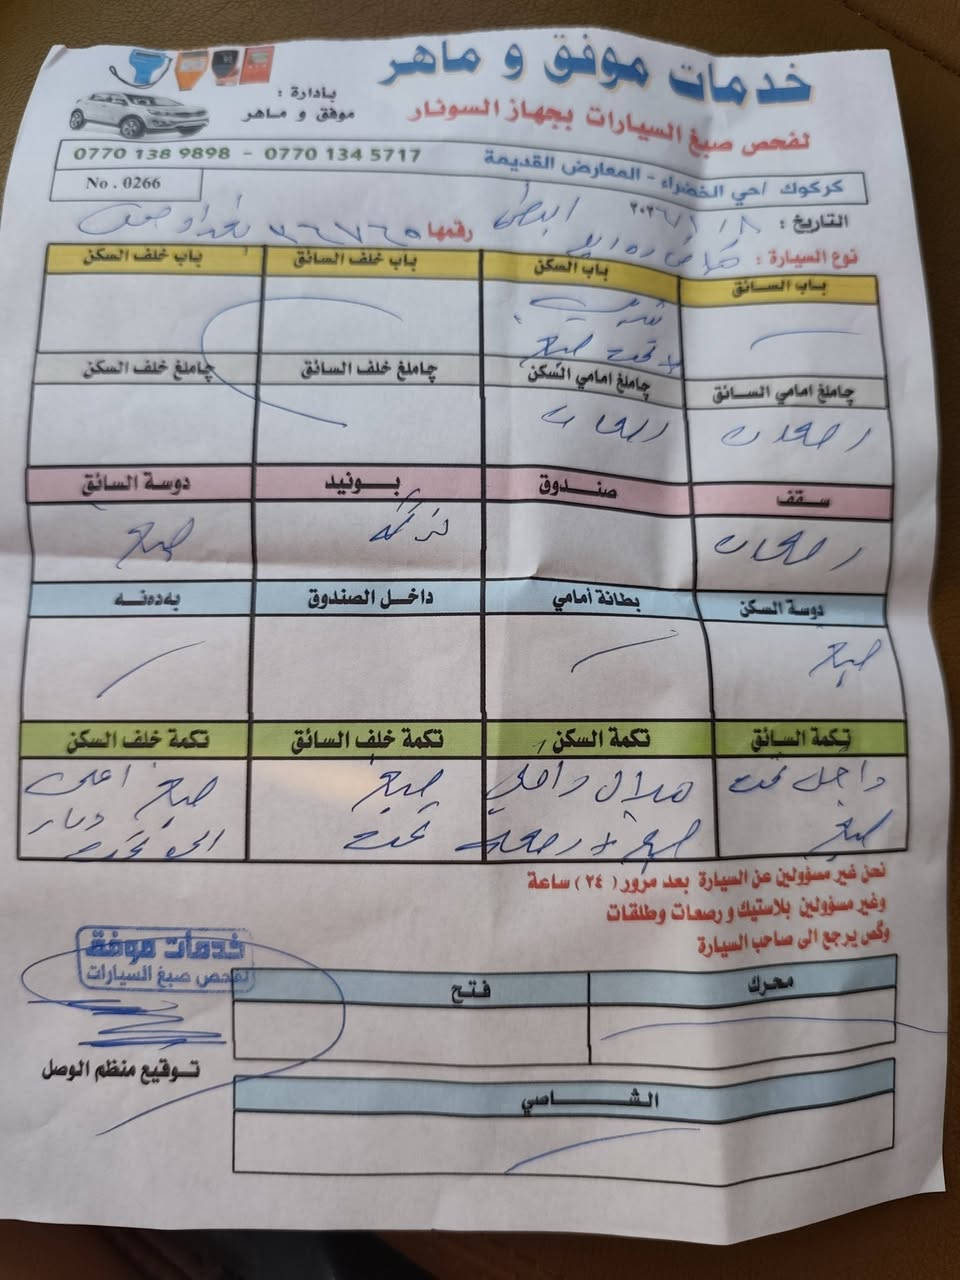 خدمات موفق و ماهر
بأدارة :
موفق و ماهر
لفحص صبغ السيارات بجهاز السونار
كركوك / حي الخضراء - المعارض القديمة
0770 138 9898 - 0770 134 5717
No . 0266
التاريخ :
نوع السيارة :
رقمها
باب السائق
باب السكن
باب خلف السائق
باب خلف السكن
تحت صبغ
چاملغ امامي السائق
چاملغ امامي السكن
چاملغ خلف السائق
چاملغ خلف السكن
رصعات
رصعات
سقف
صندوق
بونيد
دوسة السائق
رصعات
صبغ
دوسة السكن
بطانة أمامي
داخل الصندوق
بەدەنە
صبغ
تكمة السائق
تكمة السكن
تكمة خلف السائق
تكمة خلف السكن
داخل تحت
صبغ
صبغ
تحت
صبغ اعلى
نحن غير مسؤولين عن السيارة بعد مرور ( ٢٤ ) ساعة
وغير مسؤولين بلاستيك و رصعات وطلقات
وگص يرجع الى صاحب السيارة
خدمات موفق
لفحص صبغ السيارات
محرك
فتح
توقيع منظم الوصل
الشاصي